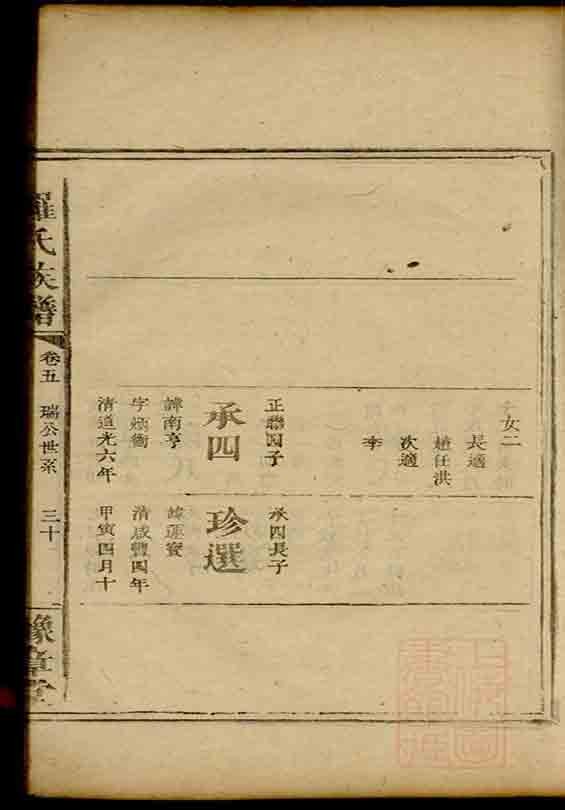 女二
長適
趙任洪
次適
李
正聯四子
承四
諱南亨
字炳衡
清道光六年
承四長子
珍選
諱蓮寶
清咸豐四年
甲寅四月十
羅氏族譜
卷五
瑞公世系
三十
豫章堂